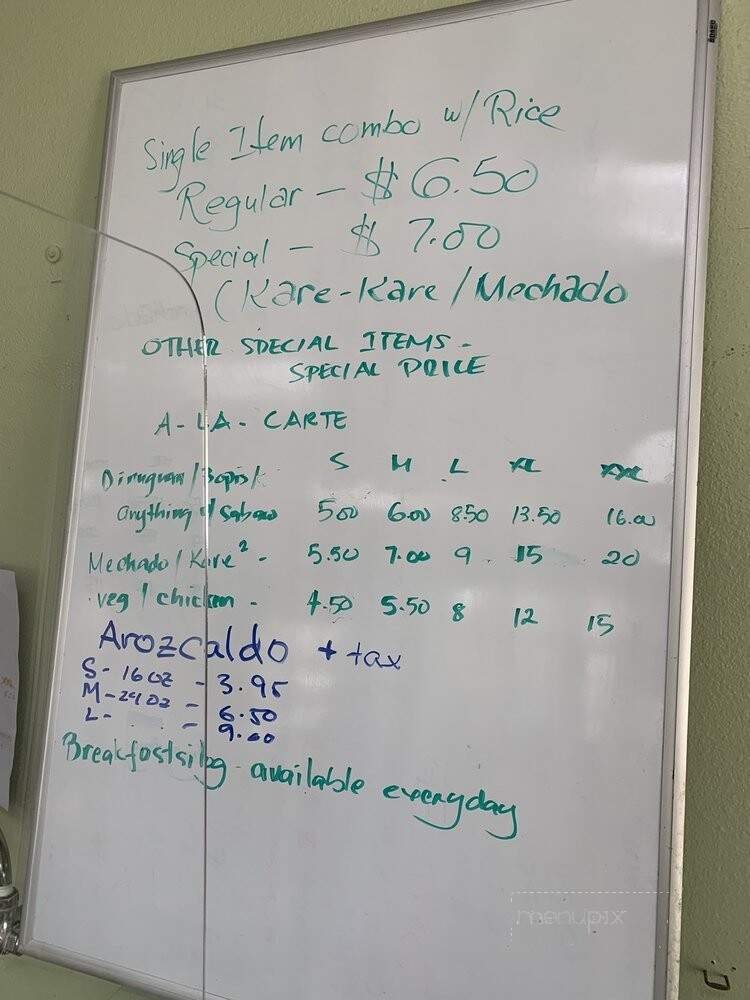 Single Item combo w/ Rice
Regular - $ 6.50
Special - $ 7.00
(Kare-Kare / Mechado
OTHER SPECIAL ITEMS -
SPECIAL PRICE
A - LA - CARTE
S M L XL XXL
Dinuguan / Bopis /
anything w/ sabaw 5.00 6.00 8.50 13.50 16.00
Mechado / Kare² - 5.50 7.00 9 15 20
veg / chicken - 4.50 5.50 8 12 15
Arozcaldo + tax
S - 16 oz - 3.95
M - 24 oz - 6.50
L - - 9.00
Breakfastsilog available everyday
menupix